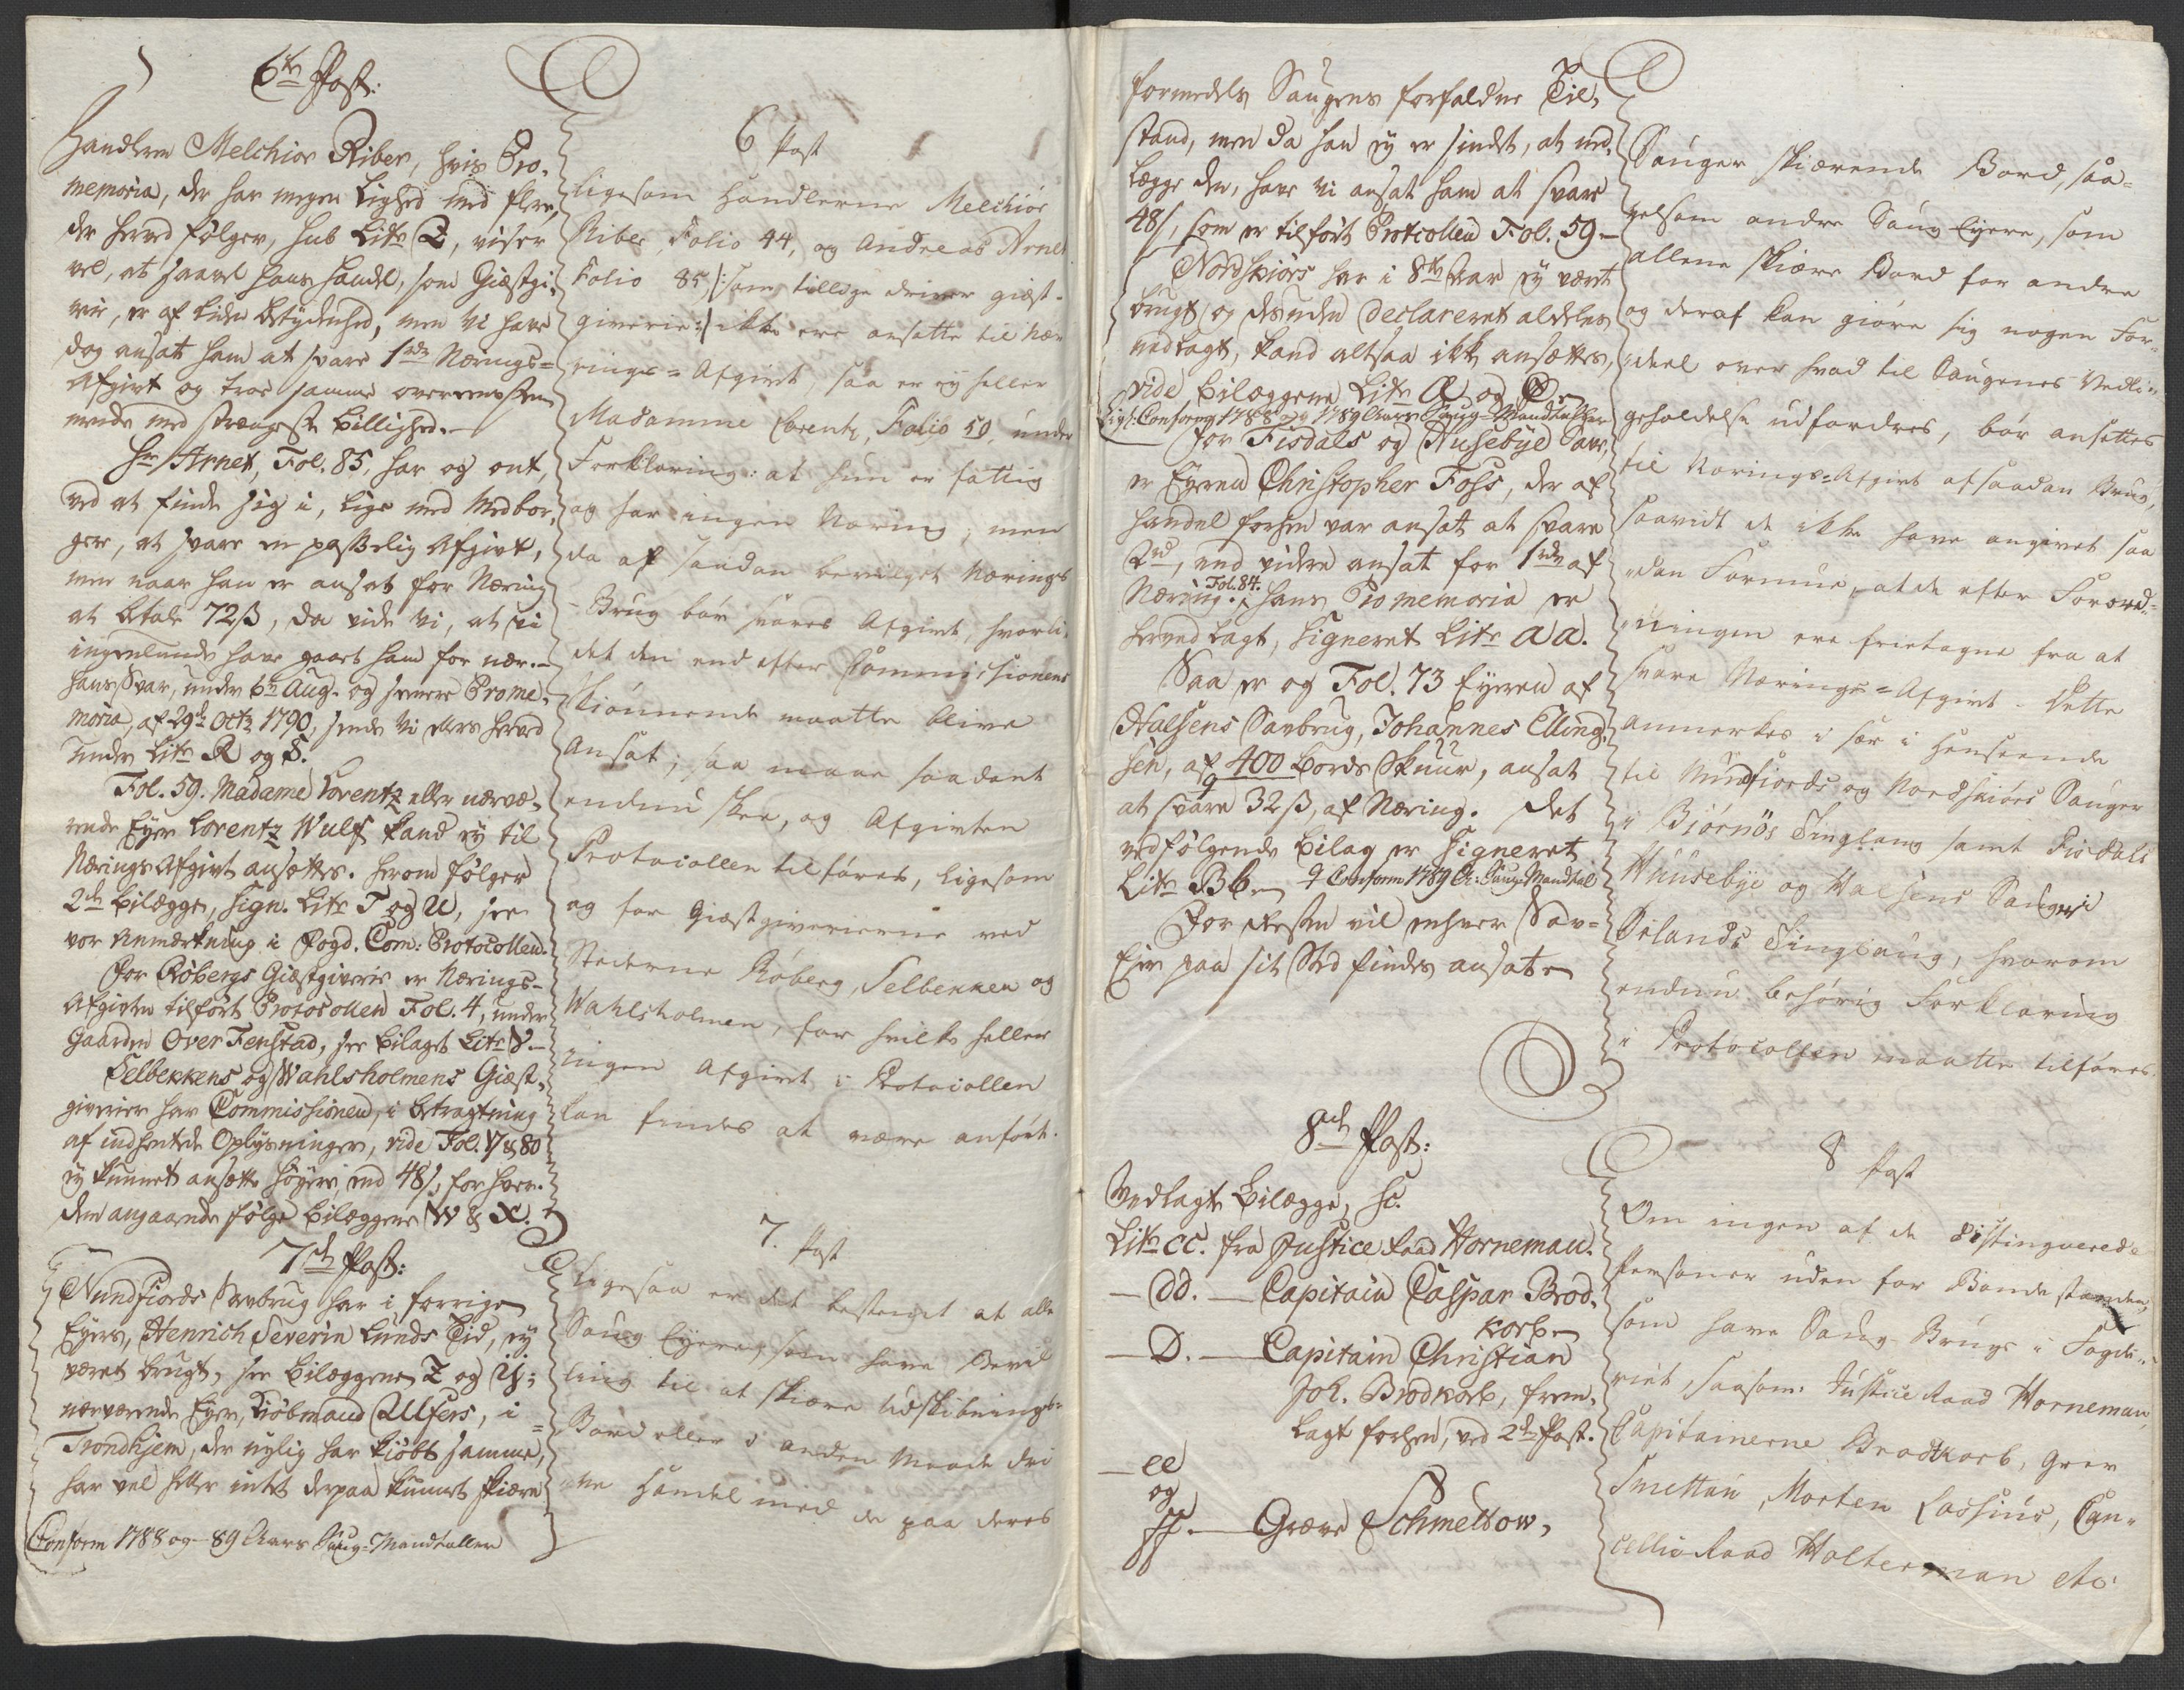 6te Post:
Handleren Melchior Riber, hvis Pro-
memoria, der har megen Lighed med flere,
der herved følger, sub Litr Q, viser
vel, at saavel hans Handel, som Giæstgi-
verie, er af liden betydenhed, men vi have
dog ansat ham at svare 1rdr Nærings-
Afgivt og troe samme overeensstem-
mende med strængeste billighed.
Hr Arnet, Fol. 85, har og ont
ved at finde sig i, lige med Medbor-
gere, at svare en passelig Afgivt,
men naar han er ansat for Næring
at betale 72ß, da vide vi, at vi
ingenlunde have giort ham for nær.
Hans Svar, under 6te Aug. og senere Prome-
moria, af 29de Octr 1790, sende vi ellers herved
under Litr R og S.
Fol. 59. Madame Lorentz eller nærvæ-
rende Eyer Lorentz Wulf kand ey til
Nærings Afgivt ansættes. herom følger
2de bilægge, Sign. Litr T og U, see
vor Anmærkning i Fogd. Com: Protocollen.
For Røbergs Giæstgiverie er Nærings-
Afgivten tilført Protocollen Fol. 4, under
Gaarden Over Fenstad, see bilaget Litr V.
Selbekkens og Wahlsholmens Giæst-
giverier har Commissionen, i betragtning
af indhentede Oplysninger, vide Fol. 17 & 80
ey kunnet ansætte høyere, end 48ß, for hver.
dem angaaende følge bilæggene W & X.
7de Post:
Nundfiords Savbrug har i forrige
Eyers, Henrich Severin Lunds Tid, ey
været brugt, see bilæggene Z og ij;
nærværende Eyer, Kiøbmand Ulfers, i
Trondhjem, der nylig har kiøbt samme,
har vel heller intet derpaa kunnet skiære
Conform 1788 og 89 Aars Saug-Mandtaller
6 Post
Ligesom Handlerne Melchior
Riber, Folio 44, og Andreas Arnet
Folio 85 /: som tillige driver giæst-
giverie :/ ikke ere ansatte til Næ-
rings-Afgivt, saa er ey heller
Madamme Lorentz, Folio 59, under
Forklaring: at hun er fattig
og har ingen Næring; men
da af saadan bevilget Nærings
Brug bør svares Afgivt, hvorli-
det den end efter Commissionens
Skiønnende maatte blive
Ansat; saa maae saadant
endnu skee, og Afgivten
Protocollen tilføres, ligesom
og for Giæstgiverierne ved
Stederne Røberg, Selbekken og
Wahlsholmen, for hvilke heller
ingen Afgivt i Protocollen
kan findes at være anført.
7. Post
Ligesaa er det bestemt at alle
Saug Eyere, som have Bevil-
ling til at skiære Udskibnings-
Bord eller i anden Maade dri-
ve Handel med de paa deres
formedelst Saugens forfaldne Til-
stand, men da han ey er sindet, at ned-
lægge den, have vi ansat ham at svare
48ß, som er tilført Protcollen Fol. 59
Nordskiørs har i 8te Aar ey været
brugt og desuden declareret aldeles
nedlagt, kand altsaa ikke ansættes,
vide bilæggene Litr Æ og Ø
Lige Conform 1788 og 1789 Aars Saug-Mandtaller
For Fisdals og Husebye Save
er Eyeren Christopher Foss, der af
Handel forhen var ansat at svare
2rd, end videre ansat for 1rdr af
Næring. Fol. 84. hans Promemoria er
herved lagt, signeret Litr aa.
Saa er og Fol. 73 Eyeren af
Halsens Savbrug, Johannes Elling-
sen, af 400 bords Skuur, ansat
at svare 32ß, af Næring. Det
vedfølgende bilag er signeret
Litr Bb. Conform 1789 A: Saug-Mandtal
For Resten vil enhver Sav-
Eier paa sit Sted findes ansat
8de Post:
Vedlagte bilægge, sc.
Litr cc. fra Justice Raad Horneman.
— dd. — Capitain Caspar Brod-
korb
— D. — Capitain Christian
Joh. Brodkorb, frem-
lagt forhen, ved 2de Post.
— ee
og
ff. — Græve Schmettow,
Sauger skiærende Bord, saa-
velsom andre Saug Eyere, som
allene skiære Bord for andre
og deraf kan giøre sig nogen For-
deel over hvad til Saugenes Vedli-
geholdelse udfordres, bør ansættes
til Nærings-Afgivt af saadan Brug,
saavidt de ikke have angivet saa-
dan Formue, at de efter Forord-
ningen ere fritagne fra at
svare Nærings-Afgivt. Dette
anmerkes i sær i Henseende
til Nundfiords og Nordskiørs Sauger
i Biørnör Tinglaug samt Fisdals
Huusebye og Halsens Sauger i
Ørlands Tinglaug, hvorom
endnu behørig Forklaring
i Protocollen maatte tilføres.
8 Post
Om ingen af de distinguerede
Personer uden for Bondestanden,
som have Saug-Brug i Fogde-
riet, saasom: Justice Raad Horneman,
Capitainerne Brodtkorb, Grev
Smettau, Morten Lossius, Can-
cellie Raad Holterman etc.